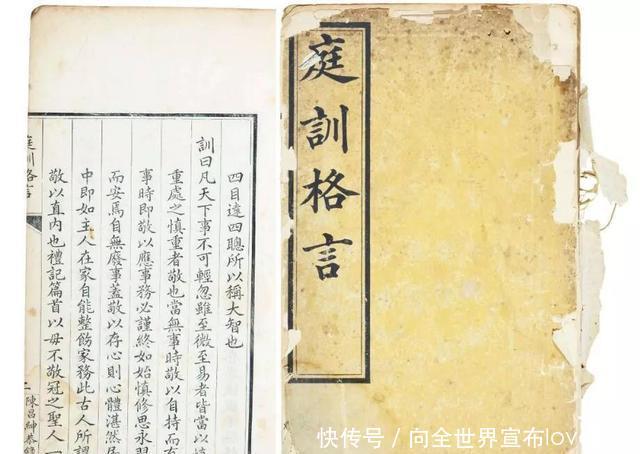 庭訓格言
四目達四聰所以稱大智也
訓曰凡天下事不可輕忽雖至微至易者皆當以
重處之慎重者敬也當無事時敬以自持而有
事時即敬以應事務必謹終如始慎修思永習
而安焉自無廢事蓋敬以存心則心體湛然居
中即如主人在家自能整飭家務此古人所謂
敬以直内也禮記篇首以毋不敬冠之聖人一
庭訓格言
二 陳昌紳恭
快传号 / 向全世界宣布love